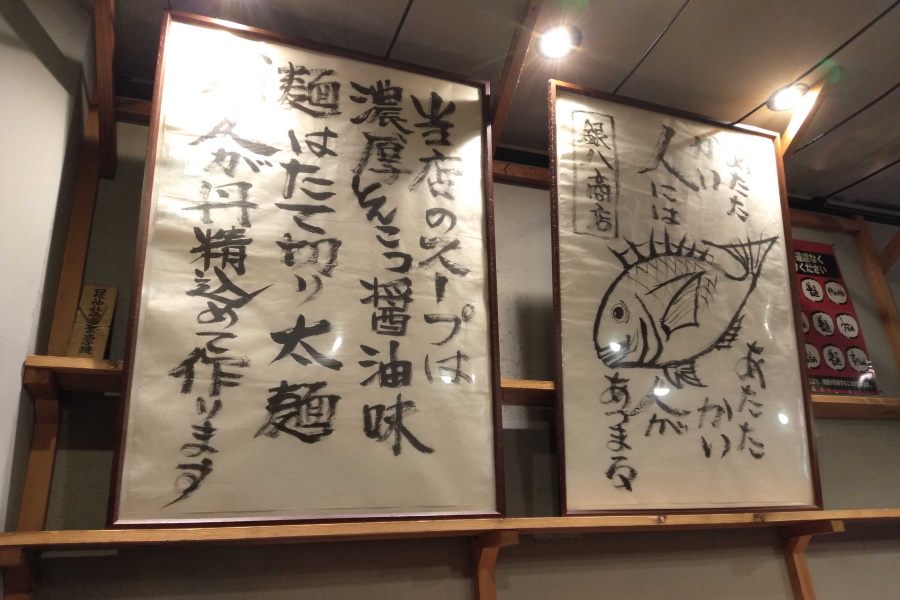 当店のスープは
濃厚とんこつ醤油味
麺はたて切り太麺
人が丹精込めて作ります
あたた
かい
人には
あたた
かい
人が
あつまる
銀八商店